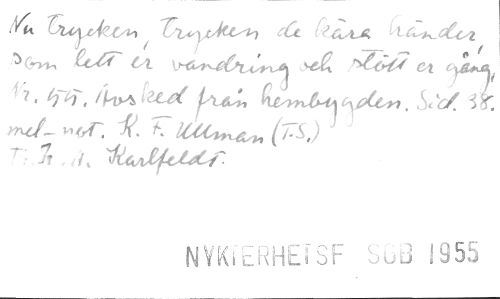 Nu trycken, trycken de kära händer,
som lett er vandring och stött er gång,
Nr. 55. Avsked från hembygden. Sid. 38.
mel-not. K. F. Ullman (T.S.)
Karlfeldt.
NYKTERHETSF SGB 1955